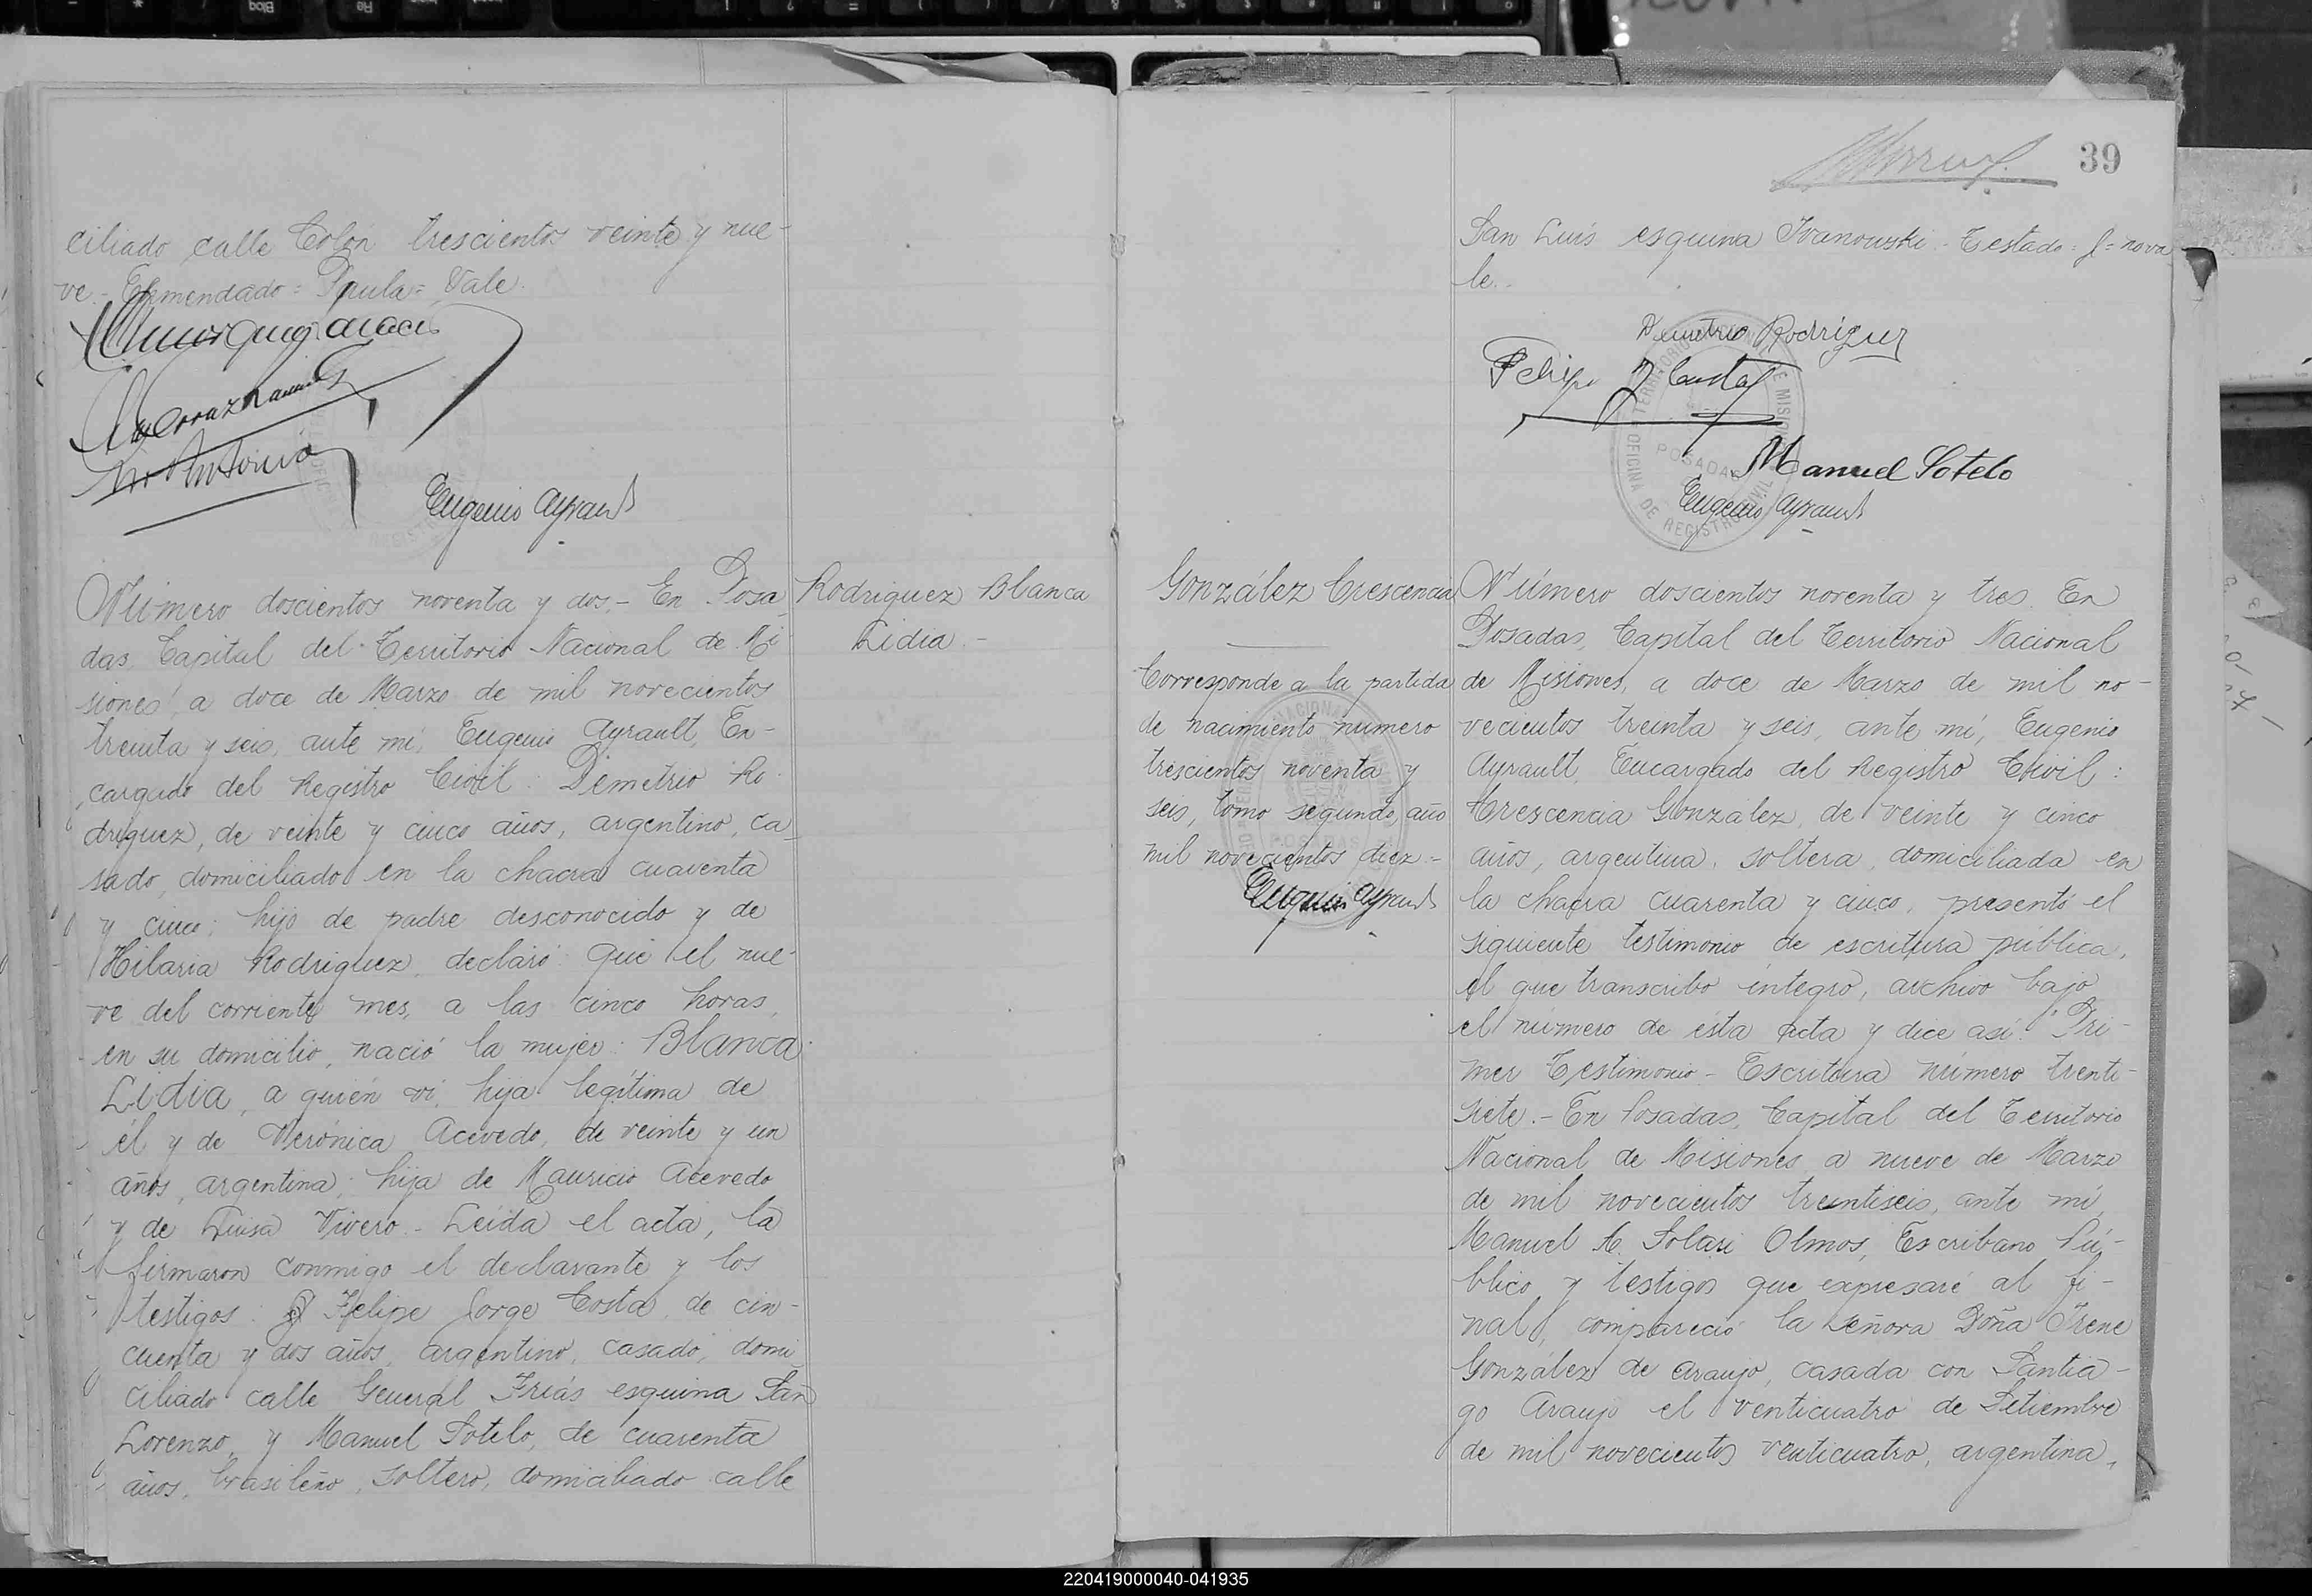 ciliado calle Colón trescientos veinte y nue-
ve.- Enmendado = Paula = Vale.
Eugenio Ayrault
Número doscientos noventa y dos.- En Posa
das, Capital del Territorio Nacional de Mi
siones, a doce de Marzo de mil novecientos
treinta y seis, ante mí, Eugenio Ayrault, En-
cargado del Registro Civil: Demetrio Ro-
dríguez, de veinte y cinco años, argentino, ca-
sado, domiciliado en la chacra cuarenta
y cinco; hijo de padre desconocido y de
Hilaria Rodríguez, declaró: Que el nue-
ve del corriente mes, a las cinco horas,
en su domicilio, nació la mujer: Blanca
Lidia, a quién ví, hija legítima de
él y de Verónica Acevedo, de veinte y un
años, argentina; hija de Mauricio Acevedo
y de Luisa Vivero.- Leída el acta, la
firmaron conmigo el declarante y los
testigos: Felipe Jorge Costa, de cin-
cuenta y dos años, argentino, casado, domi-
ciliado calle General Frías esquina San
Lorenzo, y Manuel Sotelo, de cuarenta
años, brasileño, soltero, domiciliado calle
Rodriguez Blanca
Lidia.-
39
San Luis esquina Ivanowski.- Testado: f = no va
le.-
Demetrio Rodriguez
Felipe J Costa
Manuel Sotelo
Eugenio Ayrault
TERRITORIO NACIONAL DE MISIONES
POSADAS
OFICINA DE REGISTRO CIVIL
González Crescencia
Corresponde a la partida
de nacimiento número
trescientos noventa y
seis, tomo segundo, año
mil novecientos diez.-
Eugenio Ayrault
POSADAS
Número doscientos noventa y tres. En
Posadas, Capital del Territorio Nacional
de Misiones, a doce de Marzo de mil no-
vecientos treinta y seis, ante mí, Eugenio
Ayrault, Encargado del Registro Civil:
Crescencia González, de veinte y cinco
años, argentina, soltera, domiciliada en
la chacra cuarenta y cinco, presentó el
siguiente testimonio de escritura pública,
el que transcribo íntegro, archivo bajo
el número de ésta acta y dice así: "Pri-
mer Testimonio - Escritura número trenti-
siete.- En Posadas, Capital del Territorio
Nacional de Misiones a nueve de Marzo
de mil novecientos treintiseis, ante mí,
Manuel A. Solari Olmos, Escribano Pú-
blico y testigos que expresaré al fi-
nal, compareció la Señora Doña Irene
González de Araujo, casada con Santia-
go Araujo el venticuatro de Setiembre
de mil novecientos venticuatro, argentina,
220419000040-041935